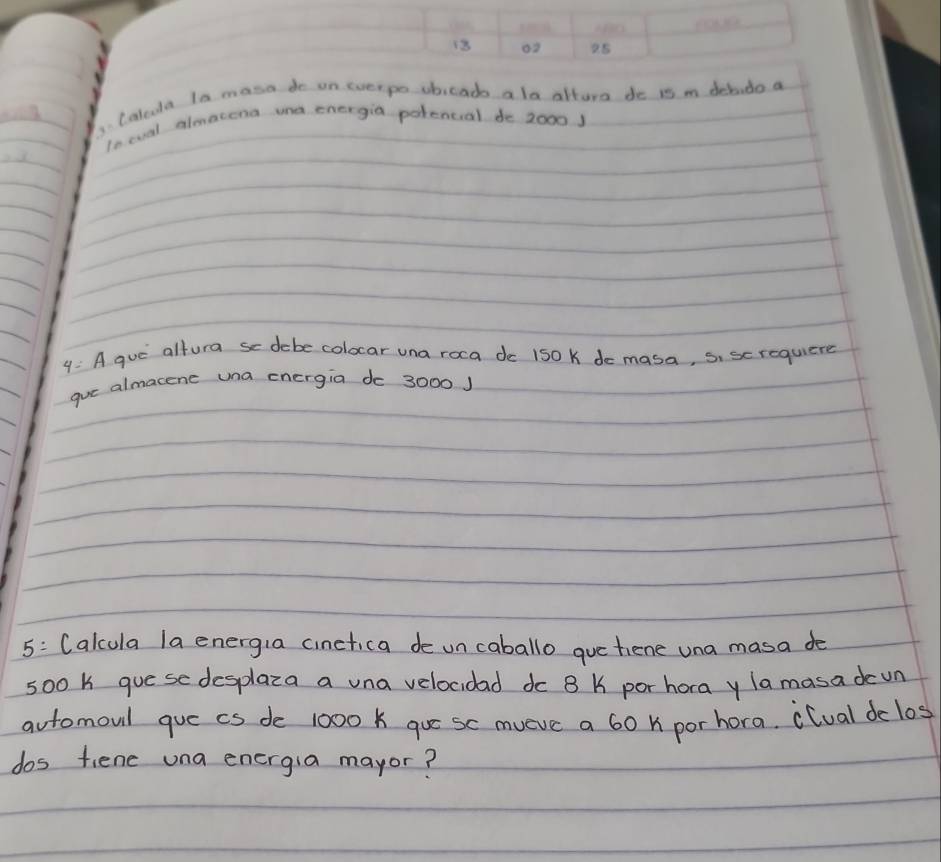 13 02 25
3: Calcula la masa de un cuerpo ubicado a la altura de 15 m debido a
lo cual almacena una energia potencial de 2000 J
4: A qué altura se debe colocar una roca de 150 K de masa, si se requiere
que almacene una energia de 3000 J
5: Calcula la energia cinetica de un caballo que tiene una masa de
500 K que se desplaza a una velocidad de 8 K por hora y la masa de un
automovil que es de 1000 K que se mueve a 60 K por hora. ¿Cual de los
dos tiene una energia mayor?